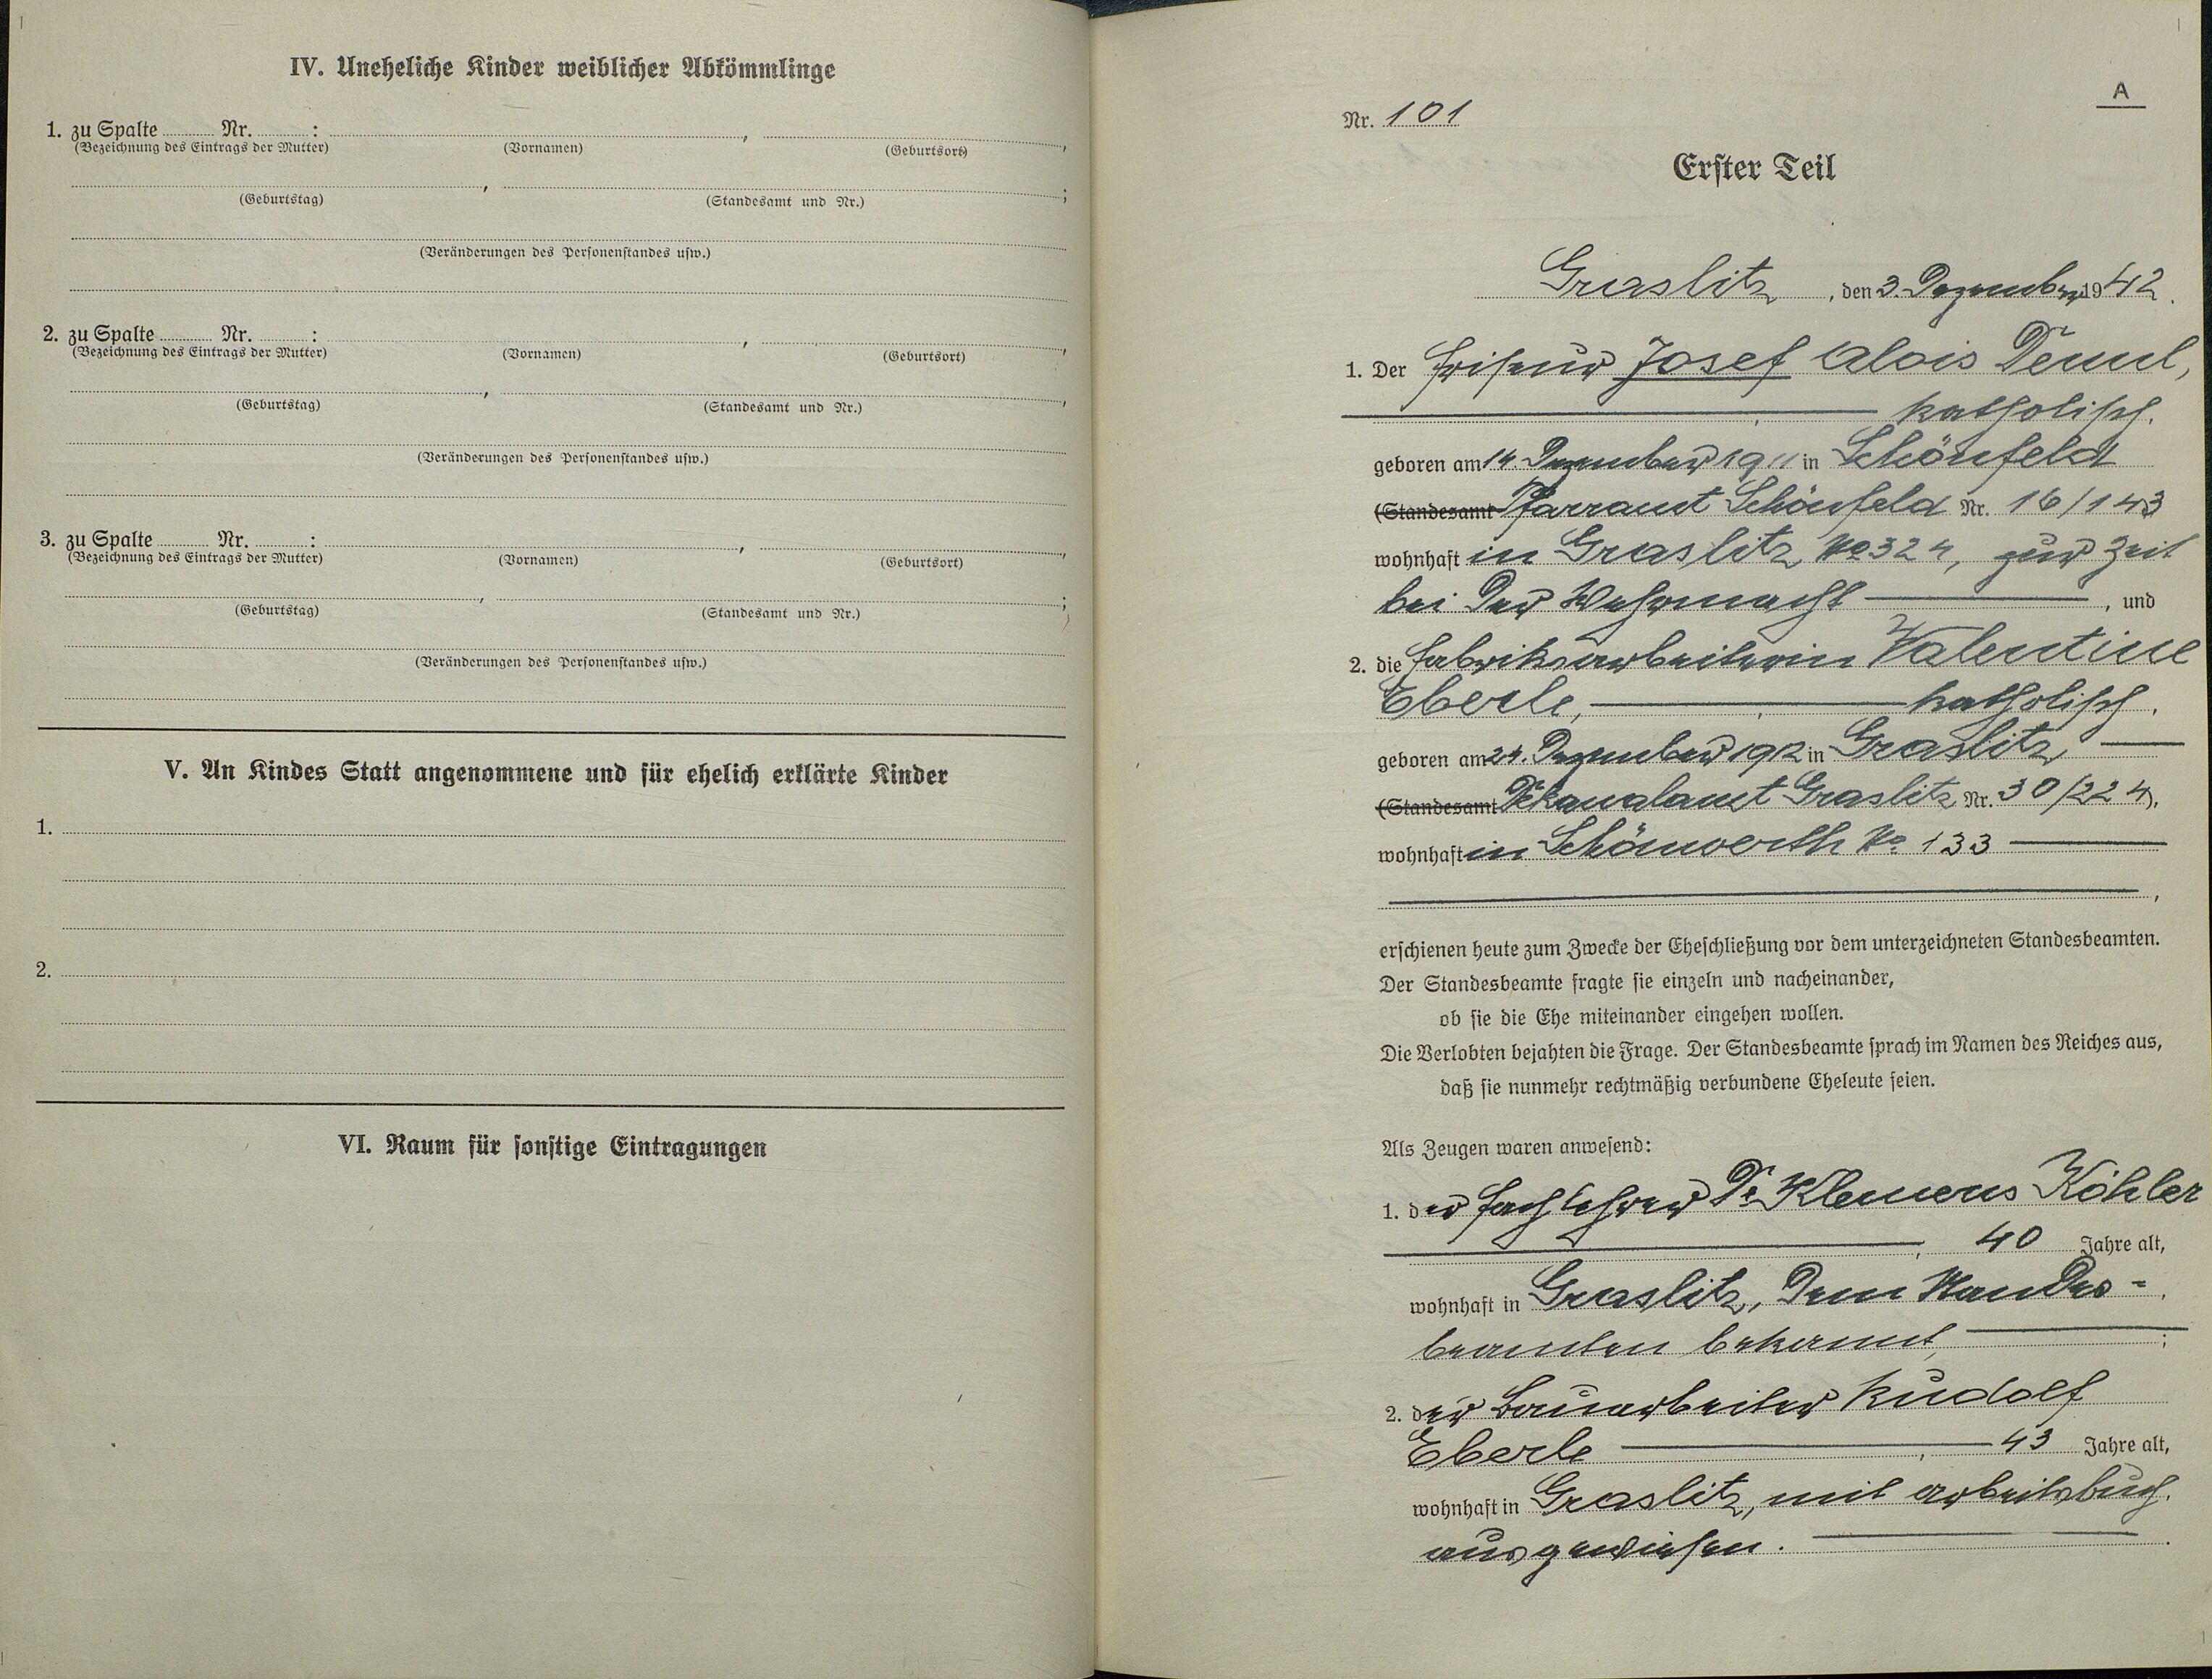 IV. Uneheliche Kinder weiblicher Abkömmlinge
1. zu Spalte ........ Nr. ........ : ........ , ........ ,
(Bezeichnung des Eintrags der Mutter) (Vornamen) (Geburtsort)
........ , ........ ;
(Geburtstag) (Standesamt und Nr.)
(Veränderungen des Personenstandes usw.)
2. zu Spalte ........ Nr. ........ : ........ , ........ ,
(Bezeichnung des Eintrags der Mutter) (Vornamen) (Geburtsort)
........ , ........ ,
(Geburtstag) (Standesamt und Nr.)
(Veränderungen des Personenstandes usw.)
3. zu Spalte ........ Nr. ........ : ........ , ........ ,
(Bezeichnung des Eintrags der Mutter) (Vornamen) (Geburtsort)
........ , ........ ;
(Geburtstag) (Standesamt und Nr.)
(Veränderungen des Personenstandes usw.)
V. An Kindes Statt angenommene und für ehelich erklärte Kinder
1.
2.
VI. Raum für sonstige Eintragungen
A
Nr. 101
Erster Teil
Graslitz, den 3. Dezember 1942.
1. Der Friseur Josef Alois
katholisch,
geboren am 14. Dezember 1911 in Schönfeld
(Standesamt Pfarramt Schönfeld Nr. 16/143
wohnhaft in Graslitz No 324, zur Zeit
bei der Wehrmacht, und
2. die Fabriksarbeiterin Valentine
Eberle, katholisch,
geboren am 24. Dezember 1912 in Graslitz
(Standesamt Dekanalamt Graslitz Nr. 30/224),
wohnhaft in Schönwerth No 133
,
erschienen heute zum Zwecke der Eheschließung vor dem unterzeichneten Standesbeamten.
Der Standesbeamte fragte sie einzeln und nacheinander,
ob sie die Ehe miteinander eingehen wollen.
Die Verlobten bejahten die Frage. Der Standesbeamte sprach im Namen des Reiches aus,
daß sie nunmehr rechtmäßig verbundene Eheleute seien.
Als Zeugen waren anwesend:
1. der Fachlehrer Dr Klemens Köhler
, 40 Jahre alt,
wohnhaft in Graslitz, dem Standes-
beamten bekannt, ;
2. der Bauarbeiter Rudolf
Eberle, 43 Jahre alt,
wohnhaft in Graslitz, mit Arbeitsbuch
ausgewiesen.